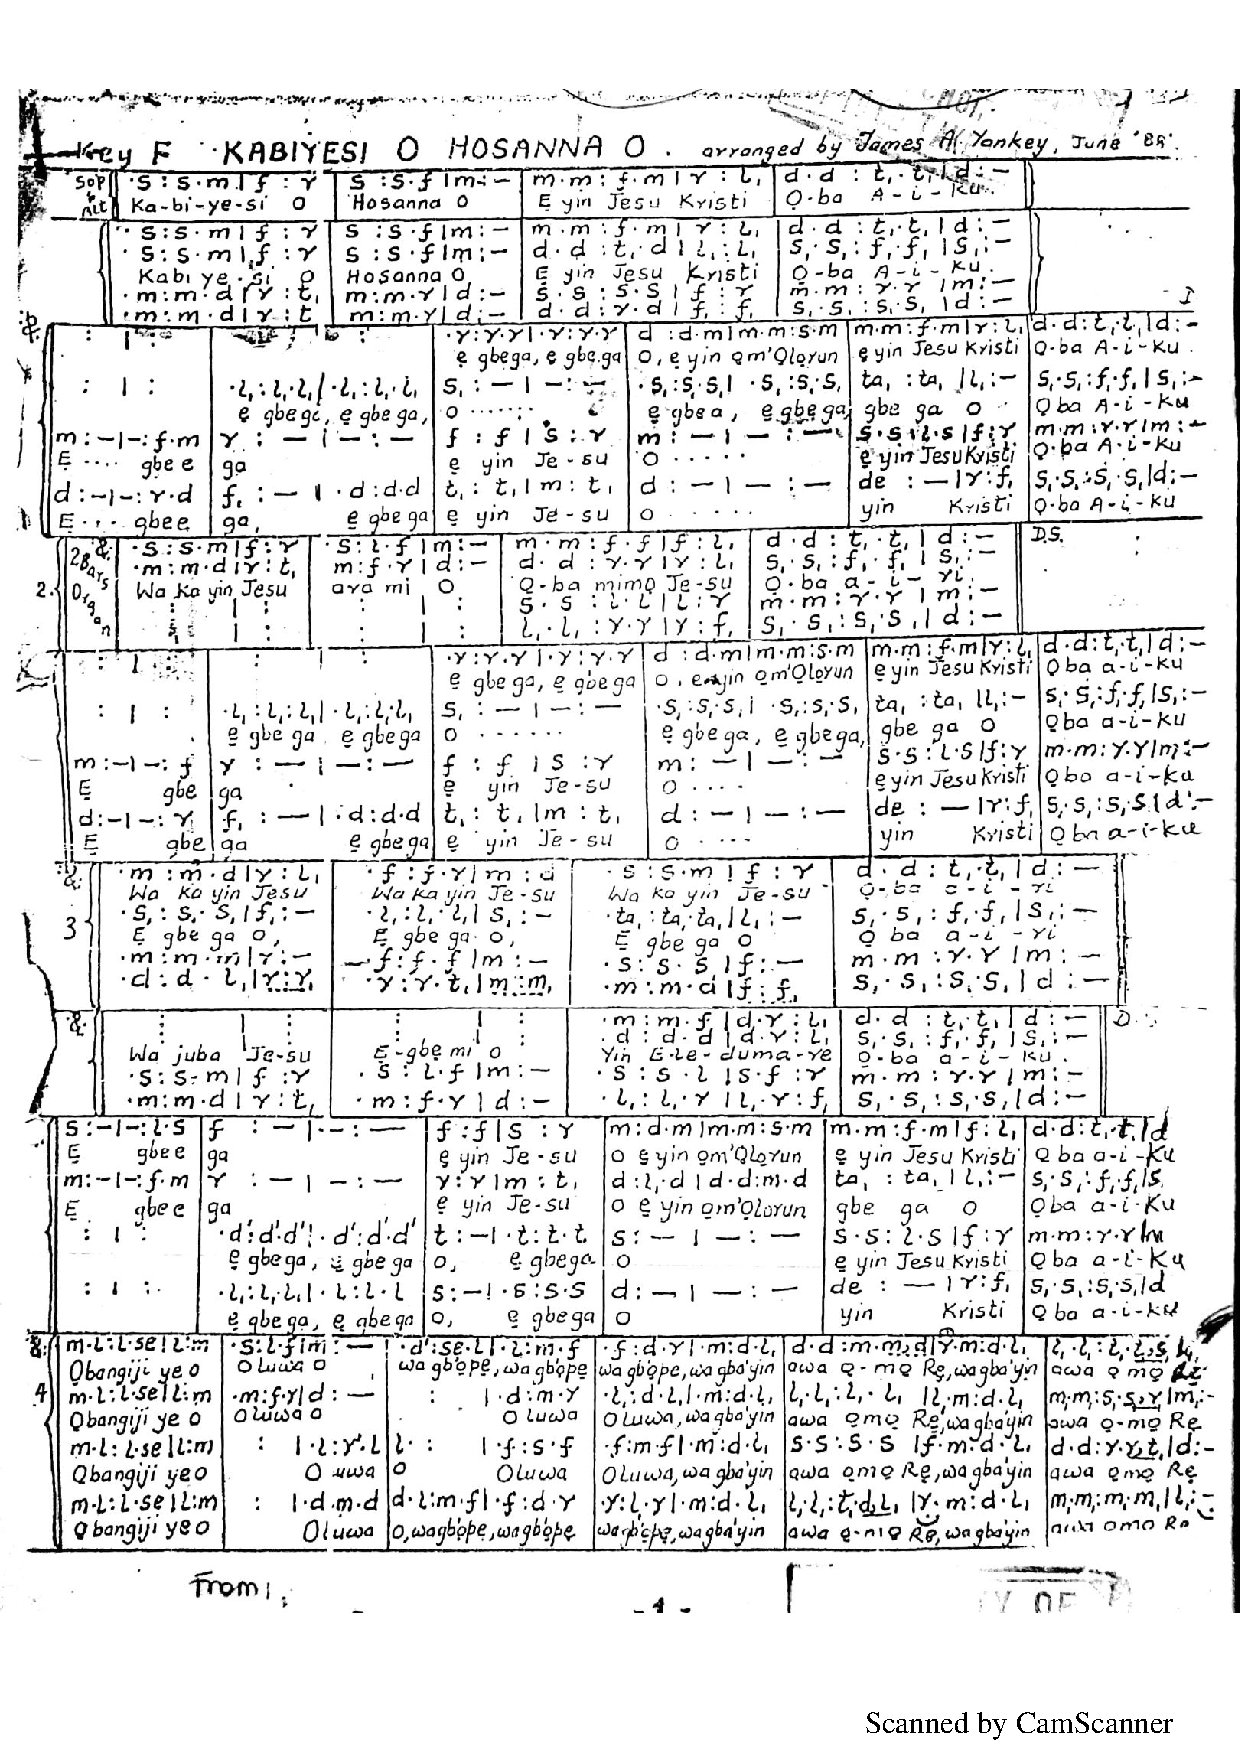 Key F KABIYESI O HOSANNA O. arranged by James A. Yankey, June '88.
Sop + Alt ·s : s·m | f : r   s : s·f | m : –   m·m : f·m | r : l,   d·d : t,·t, | d : –
Ka-bi-ye-si O   Hosanna O   Ẹ yin Jesu Kristi   Ọ-ba A-i-ku
·s : s·m | f : r   s : s·f | m : –   m·m : f·m | r : l,   d·d : t,·t, | d : –
·s : s·m | f : r   s : s·f | m : –   d·d : t,·d | l, : l,   s,·s, : f,·f, | s, : –
Kabi ye-si O   Hosanna O   Ẹ yin Jesu Kristi   Ọ-ba A-i-ku.
·m : m·d | r : t,   m : m·r | d : –   s·s : s·s | f : r   m·m : r·r | m : –
·m : m·d | r : t,   m : m·r | d : –   d·d : r·d | f, : f,   s,·s, : s,·s, | d : –
: | :   ·r : r·r | ·r : r·r   d : d·m | m·m : s·m   m·m : f·m | r : l,   d·d : t,·t, | d : –
ẹ gbega, ẹ gbẹga   O, ẹ yin ọm'Ọlọrun   ẹ yin Jesu Kristi   Ọ-ba A-i-ku.
: | :   ·l, : l,·l, | ·l, : l,·l,   s, : – | – : –   ·s, : s,·s, | ·s, : s,·s,   ta, : ta, | l, : –   s,·s, : f,·f, | s, : –
ẹ gbega, ẹ gbe ga,   o ......   ẹ gbe a, ẹ gbẹ ga,   gbe ga O   Ọba A-i-ku
m : – | – : f·m   r : – | – : –   f : f | s : r   m : – | – : –   s·s : l·s | f : r   m·m : r·r | m : –
Ẹ .... gbe e   ga   ẹ yin Je-su   O ......   ẹ yin Jesu Kristi   Ọ-ba A-i-ku
d : – | – : r·d   f, : – | ·d : d·d   t, : t, | m : t,   d : – | – : –   de : – | r : f,   s,·s, : s,·s, | d : –
E ... gbee   ga, ẹ gbega   ẹ yin Je-su   O ......   yin Kristi   Ọ-ba A-i-ku
2. 2 Bars Organ ·s : s·m | f : r   ·s : l·f | m : –   m·m : f·f | f : l,   d·d : t,·t, | d : –   D.S.
·m : m·d | r : t,   m : f·r | d : –   d·d : r·r | r : l,   s,·s, : f,·f, | s, : –
Wa ka yin Jesu   aya mi O   Ọ-ba mimọ Je-su   Ọ-ba a-i-yi.
: | :   | :   s·s : l·l | l : r   m·m : r·r | m : –
| :   | :   l,·l, : r·r | r : f,   s,·s, : s,·s, | d : –
: | :   | :   ·r : r·r | ·r : r·r   d : d·m | m·m : s·m   m·m : f·m | r : l,   d·d : t,·t, | d : –
ẹ gbe ga, ẹ gbega   O, ẹ yin ọm'Ọlọrun   ẹ yin Jesu Kristi   Ọba a-i-ku
: | :   ·l, : l,·l, | ·l, : l,·l,   s, : – | – : –   ·s, : s,·s, | ·s, : s,·s,   ta, : ta, | l, : –   s,·s, : f,·f, | s, : –
ẹ gbe ga ẹ gbega   O ......   ẹ gbe ga, ẹ gbega,   gbe ga O   Ọba a-i-ku
m : – | – : f   r : – | – : –   f : f | s : r   m : – | – : –   s·s : l·s | f : r   m·m : r·r | m : –
Ẹ gbe   ga   ẹ yin Je-su   O ....   ẹ yin Jesu Kristi   Ọba a-i-ku
d : – | – : r   f, : – | ·d : d·d   t, : t, | m : t,   d : – | – : –   de : – | r : f,   s,·s, : s,·s, | d : –
Ẹ gbe   ga ẹ gbe ga   ẹ yin Je-su   O ....   yin Kristi   Ọba a-i-ku
3 ·m : m·d | r : l,   ·f : f·r | m : d   ·s : s·m | f : r   d·d : t,·t, | d : –
Wa ka yin Jesu   Wa ka yin Je-su   Wa ka yin Je-su   Ọ-ba a-i-yi
·s, : s,·s, | f, : –   ·l, : l,·l, | s, : –   ·ta, : ta,·ta, | l, : –   s,·s, : f,·f, | s, : –
Ẹ gbe ga o,   Ẹ gbe ga o,   Ẹ gbe ga O   Ọ ba a-i-yi
·m : m·m | r : –   ·f : f·f | m : –   ·s : s·s | f : –   m·m : r·r | m : –
·d : d·l, | r : r,   ·r : r·t, | m : m,   ·m : m·d | f : f,   s,·s, : s,·s, | d : –
: | :   : | :   ·m : m·f | d·r : l,   d·d : t,·t, | d : –   D.
: | :   : | :   ·d : d·d | d·r : l,   s,·s, : f,·f, | s, : –
Wa juba Je-su   Ẹ-gbẹ mi o   Yin E-le-duma-re   Ọ-ba a-i-ku.
·s : s·m | f : r   ·s : l·f | m : –   ·s : s·l | s·f : r   m·m : r·r | m : –
·m : m·d | r : t,   ·m : f·r | d : –   ·l, : l,·r | l,·r : f,   s,·s, : s,·s, | d : –
s : – | – : l·s   f : – | – : –   f : f | s : r   m : d·m | m·m : s·m   m·m : f·m | f : l,   d·d : t,·t, | d
Ẹ gbee   ga   ẹ yin Je-su   O ẹ yin ọm'Ọlọrun   ẹ yin Jesu Kristi   Ọba a-i-ku
m : – | – : f·m   r : – | – : –   r : r | m : t,   d : l,·d | d·d : m·d   ta, : ta, | l, : –   s,·s, : f,·f, | s,
Ẹ gbee   ga   ẹ yin Je-su   O ẹ yin ọm'Ọlọrun   gbe ga O   Ọba a-i-ku
: | :   ·d' : d'·d' | ·d' : d'·d'   t : – | ·t : t·t   s : – | – : –   s·s : l·s | f : r   m·m : r·r | m
ẹ gbega, ẹ gbega   O, ẹ gbega   O   ẹ yin Jesu Kristi   Ọba a-i-ku
: | :   ·l, : l,·l, | ·l : l·l   s : – | ·s : s·s   d : – | – : –   de : – | r : f,   s,·s, : s,·s, | d
ẹ gbega, ẹ gbega   O, ẹ gbega   O   yin Kristi   Ọba a-i-ku
4 m·l : l·se | l : m   ·s : l·f | m : –   ·d' : se·l | l : m·f   f : d·r | m : d·l,   d·d : m·m,d | r·m : d·l,
Ọbangiji ye o   Oluwa o   wa gbọpẹ, wa gbọpẹ   wa gbọpẹ, wa gba'yin   awa ọ-mọ Rẹ, wa gba'yin   awa ọmọ Rẹ
m·l : l·se | l : m   ·m : f·r | d : –   : | ·d : m·r   ·l, : d·l, | ·m : d·l,   l,·l, : l,·l, | l, : m·d·l,
Ọbangiji ye o   Oluwa o   O luwa   O luwa, wa gba'yin   awa ọmọ Rẹ, wa gba'yin   awa ọ-mọ Rẹ
m·l : l·se | l : m   : | ·l : r'·l   l· : | ·f : s·f   ·f : m·f | ·m : d·l,   s·s : s·s | f·m : d·l,   d·d : r·r,t, | d : –
Ọbangiji yeo   O uwa   o   Oluwa   Oluwa, wa gba'yin   awa ọmọ Rẹ, wa gba'yin   awa ọmọ Rẹ
m·l : l·se | l : m   : | ·d·m·d   d·l : m·f | ·f : d·r   ·r : l,·r | ·m : d·l,   l,·l, : t,·d,l, | r·m : d·l,   m,·m, : m,·m, | l, : –
Ọbangiji yeo   Oluwa   o, wa gbọpẹ, wa gbọpẹ   wa gbọpẹ, wa gba'yin   awa ọ-mọ Rẹ, wa gba'yin   awa ọmọ Rẹ
From:
-1-
Scanned by CamScanner